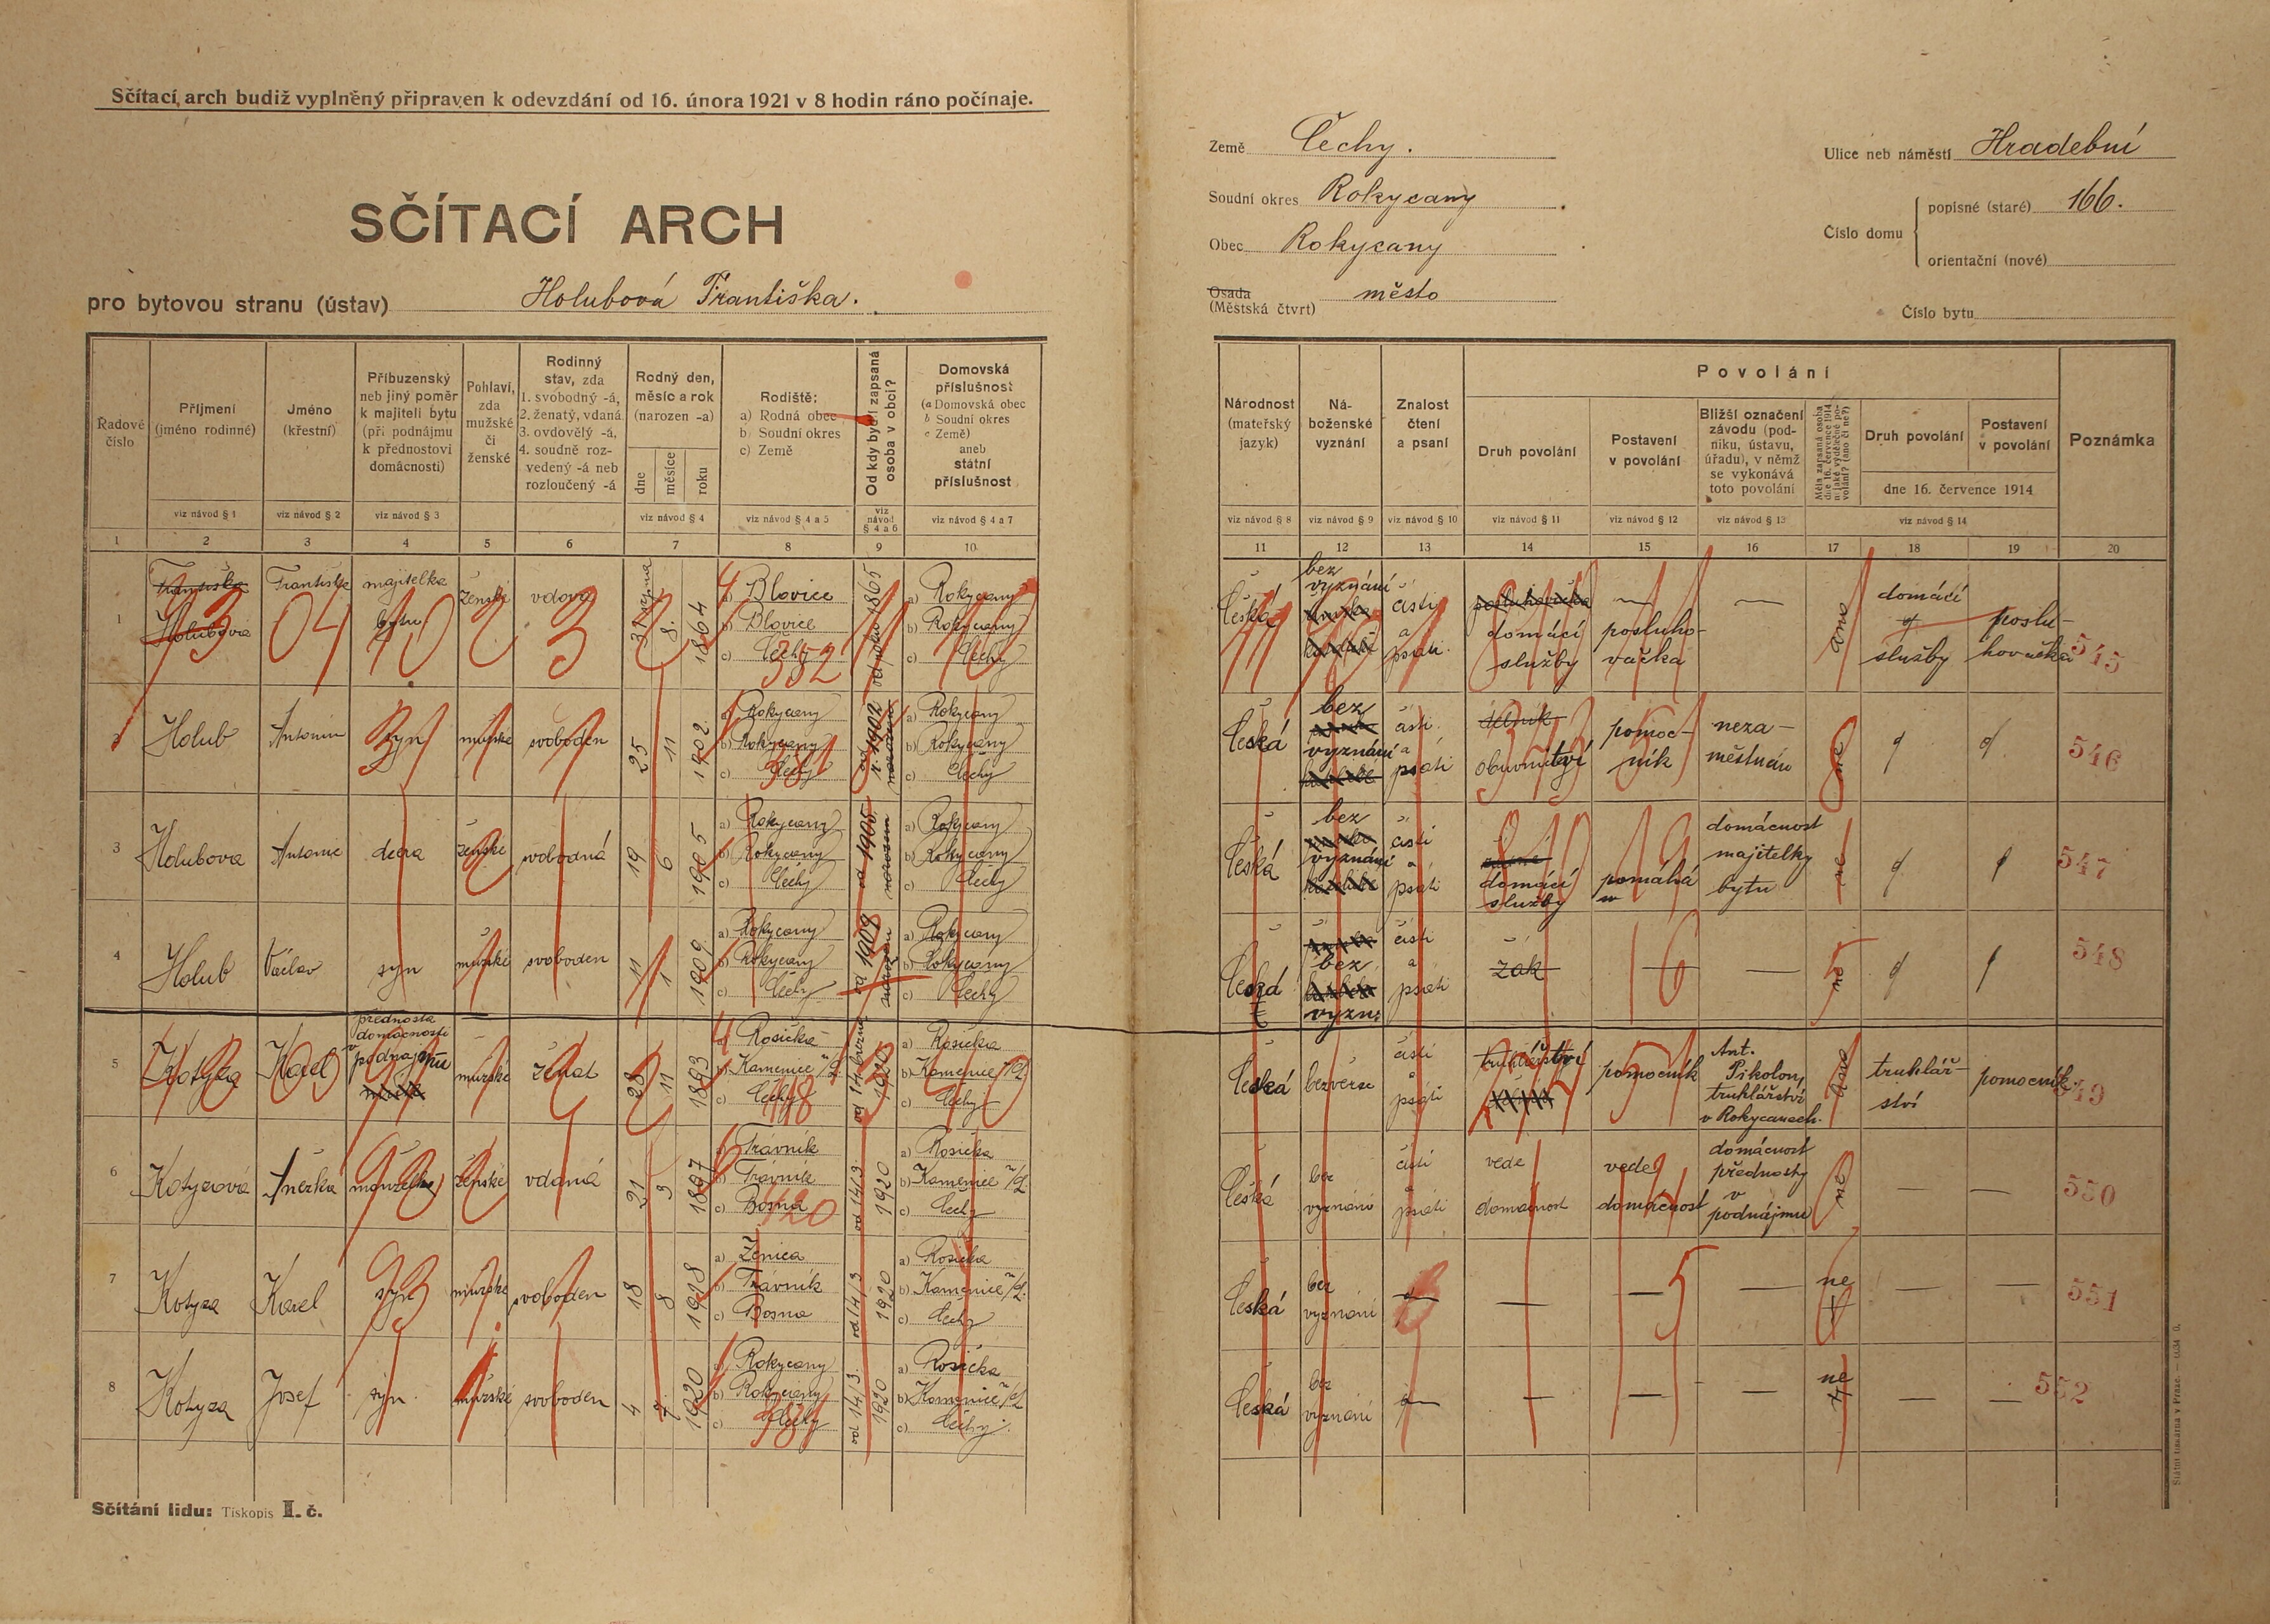 Sčítací arch budiž vyplněný připraven k odevzdání od 16. února 1921 v 8 hodin ráno počínaje.
SČÍTACÍ ARCH
pro bytovou stranu (ústav) Holubová Františka.
Země Čechy.
Soudní okres Rokycany
Obec Rokycany
Osada
(Městská čtvrt) město
Ulice neb náměstí Hradební
Číslo domu
popisné (staré) 166.
orientační (nové)
Číslo bytu
Řadové číslo
Příjmení (jméno rodinné)
Jméno (křestní)
Příbuzenský neb jiný poměr k majiteli bytu (při podnájmu k přednostovi domácnosti)
Pohlaví, zda mužské či ženské
Rodinný stav, zda 1. svobodný -á, 2. ženatý, vdaná 3. ovdovělý -á, 4. soudně rozvedený -á neb rozloučený -á
Rodný den, měsíc a rok (narozen -a)
dne měsíce roku
Rodiště: a) Rodná obec b) Soudní okres c) Země
Od kdy bydlí zapsaná osoba v obci?
Domovská příslušnost (a Domovská obec b Soudní okres c Země) aneb státní příslušnost
viz návod § 1 viz návod § 2 viz návod § 3 viz návod § 4 viz návod § 4 a 5 viz návod § 4 a 6 viz návod § 4 a 7
1 2 3 4 5 6 7 8 9 10
Národnost (mateřský jazyk)
Náboženské vyznání
Znalost čtení a psaní
Povolání
Druh povolání
Postavení v povolání
Bližší označení závodu (podniku, ústavu, úřadu), v němž se vykonává toto povolání
Měla zapsaná osoba dne 16. července 1914 nějaké výdělečné povolání? (ano či ne?)
Druh povolání
Postavení v povolání
dne 16. července 1914
Poznámka
viz návod § 8 viz návod § 9 viz návod § 10 viz návod § 11 viz návod § 12 viz návod § 13 viz návod § 14
11 12 13 14 15 16 17 18 19 20
1 Františka Holubova Františka majitelka bytu ženské vdova 8. 1864 a) Blovice b) Blovice c) Čechy 352 od roku 1865 a) Rokycany b) Rokycany c) Čechy
česká bez vyznání čísti a psáti. posluhovačka domácí služby — posluhovačka — ano domácí služby posluhovačka 545
2 Holub Antonín syn mužské svoboden 25 11 1902 a) Rokycany b) Rokycany c) Čechy 381 od r. 1902 narození a) Rokycany b) Rokycany c) Čechy
česká bez vyznání čísti a psáti dělník obuvnictví pomocník nezaměstnán ne 546
3 Holubova Antonie dcera ženské svobodná 19 6 1905 a) Rokycany b) Rokycany c) Čechy od 1905 a) Rokycany b) Rokycany c) Čechy
česká bez vyznání čísti a psáti domácí služby pomáhá domácnost majitelky bytu ne 547
4 Holub Václav syn mužské svoboden 11 1 1909 a) Rokycany b) Rokycany c) Čechy od 1909 a) Rokycany b) Rokycany c) Čechy
česká bez vyzn: čísti a psáti žák — — ne 548
5 Kotyza Karel přednosta domácnosti v podnájmu mužské ženat 28 11 1893 a) Rosička b) Kamenice n/L c) Čechy 118 od 14. března 1920 a) Rosička b) Kamenice n/L c) Čechy
česká bezvěrec čísti a psáti truhlářství pomocník Ant. Pikolon, truhlářství v Rokycanech. ano truhlářství pomocník. 549
6 Kotyzová Anežka manželka ženské vdaná 21 3 1897 a) Trávník b) Trávník c) Bosna 420 od 14/3. 1920 a) Rosička b) Kamenice n/L c) Čechy
česká bez vyznání čísti a psáti vede domácnost vede domácnost domácnost přednosty v podnájmu ne — — 550
7 Kotyza Karel syn mužské svoboden 18 8 1918 a) Zenica b) Trávník c) Bosna od 14/3 1920 a) Rosička b) Kamenice n/L. c) Čechy
česká bez vyznání — — — — ne — — 551
8 Kotyza Josef syn. mužské svoboden 4 7. 1920 a) Rokycany b) Rokycany c) Čechy 381 od 14 3. 1920 a) Rosička b) Kamenice n/L c) Čechy.
česká bez vyznání — — — — ne — — 552
Sčítání lidu: Tiskopis I. č.